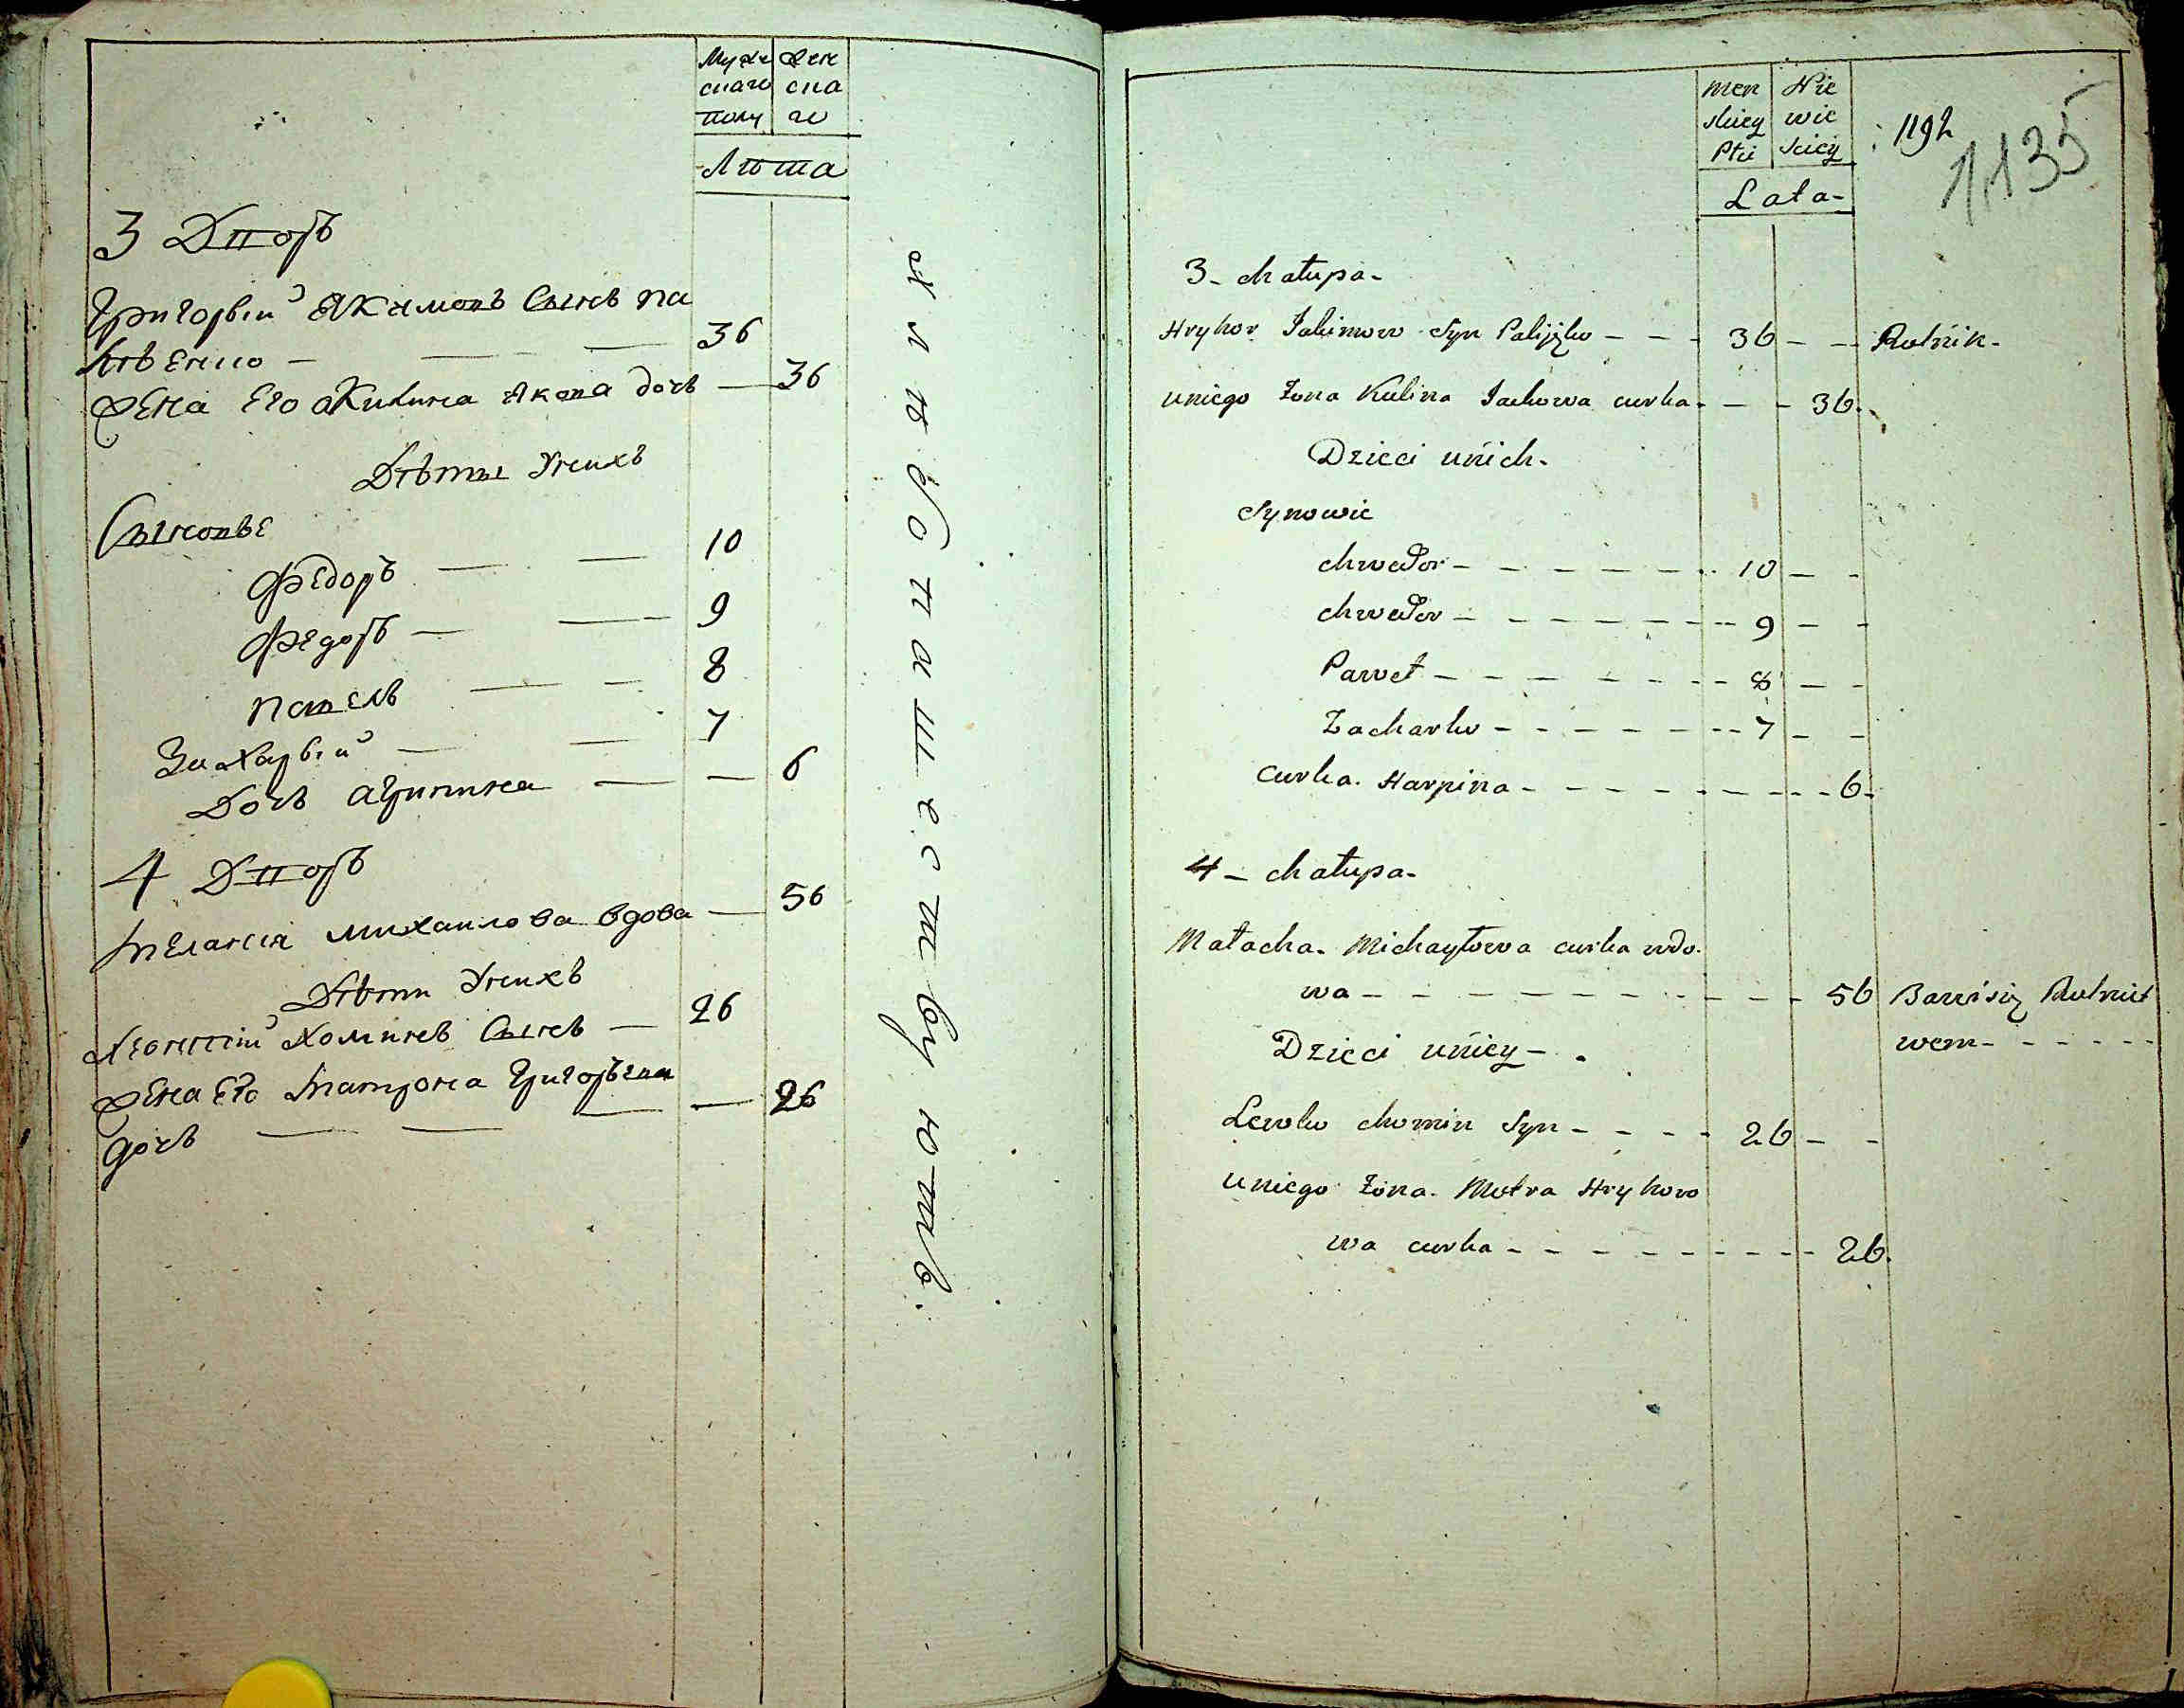 Муже Жен
скаго ска
полу го
Лѣта
3 Дворъ
Григорѣй Якимовъ Сынъ па
лѣенко — 36
Жена Его Акилина Якова дочь — 36
Дѣты Унихъ
Сыновѣе
Федоръ — 10
Федоръ — 9
Павелъ — 8
Захарѣй — 7
Дочь агрипина — 6
4 Дворъ
Меланія михаилова вдова — 56
Дѣти Унихъ
Леонтій Хоминъ Сынъ — 26
Жена Его Матрона Григорьева
дочь — 26
хлѣбопашествуютъ.
Men Nie
skiey wie
Płci sciey
Lata-
119h
1,135
3- chałupa-
Hryhor Jakimow Syn Palijęko - - - 36 - - Rolnik-
uniego Żona Kulina Jackowa curka - - - 36.
Dzieci unich-
Synowie
chwedor - - - - - - 10 - -
chwedor - - - - - - 9 - -
Paweł - - - - - - 8 - -
Zacharko - - - - - - 7 - -
curka. Harpina - - - - - - 6-
4 - chałupa-
Małacha. Michayłowa curka wdo.
wa - - - - - - 56 Bawi się Rolnict
wem - - - - -
Dzieci unicy - .
Lewko chomin Syn - - - - 26 - -
uniego żona. Motra Hryhoro
wa curka - - - - - - 26.